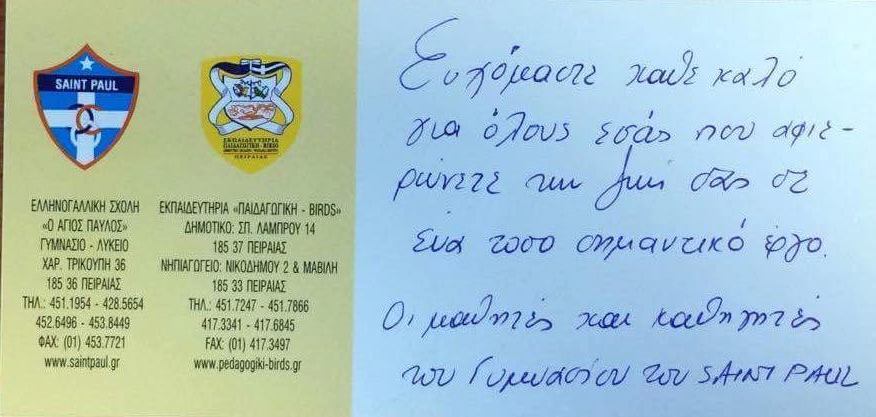 SAINT PAUL
ΕΚΠΑΙΔΕΥΤΗΡΙΑ
ΠΑΙΔΑΓΩΓΙΚΗ - BIRDS
ΠΕΙΡΑΙΑΣ
ΕΛΛΗΝΟΓΑΛΛΙΚΗ ΣΧΟΛΗ
«Ο ΑΓΙΟΣ ΠΑΥΛΟΣ»
ΓΥΜΝΑΣΙΟ - ΛΥΚΕΙΟ
ΧΑΡ. ΤΡΙΚΟΥΠΗ 36
185 36 ΠΕΙΡΑΙΑΣ
ΤΗΛ.: 451.1954 - 428.5654
452.6496 - 453.8449
ΦΑΧ: (01) 453.7721
www.saintpaul.gr
ΕΚΠΑΙΔΕΥΤΗΡΙΑ «ΠΑΙΔΑΓΩΓΙΚΗ - BIRDS»
ΔΗΜΟΤΙΚΟ: ΣΠ. ΛΑΜΠΡΟΥ 14
185 37 ΠΕΙΡΑΙΑΣ
ΝΗΠΙΑΓΩΓΕΙΟ: ΝΙΚΟΔΗΜΟΥ 2 & ΜΑΒΙΛΗ
185 33 ΠΕΙΡΑΙΑΣ
ΤΗΛ.: 451.7247 - 451.7866
417.3341 - 417.6845
FAX: (01) 417.3497
www.pedagogiki-birds.gr
Ευχόμαστε κάθε καλό
για όλους εσάς που αφιε-
ρώνετε την ζωή σας σε
ένα τόσο σημαντικό έργο.
Οι μαθητές και καθηγητές
του Γυμνασίου του SAINT PAUL